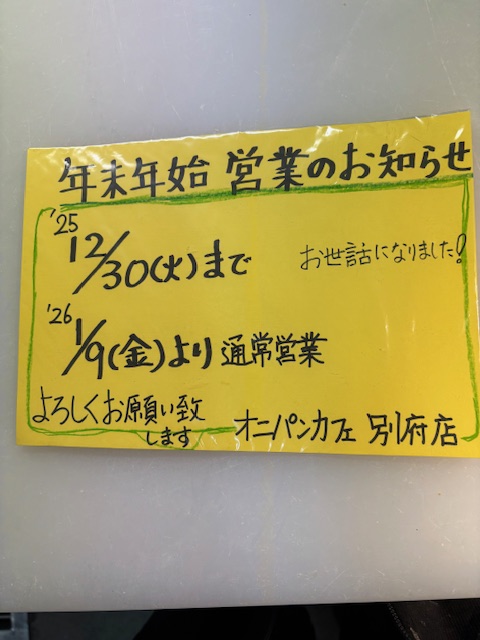 年末年始 営業のお知らせ
'25
12/30(火)まで お世話になりました!
'26
1/9(金)より通常営業
よろしくお願い致
します
オニパンカフェ 別府店